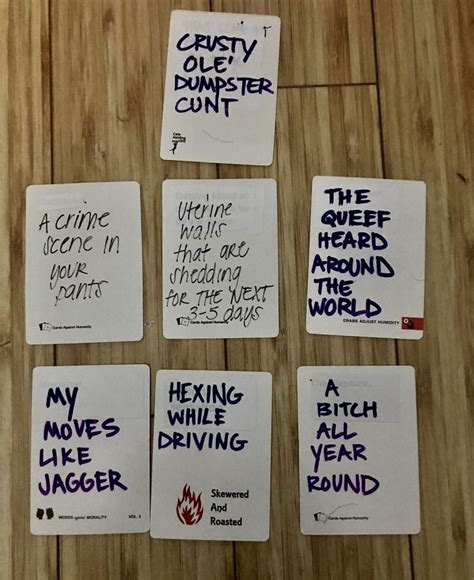 CRUSTY
OLE'
DUMPSTER
CUNT
A crime
scene in
your
pants
Cards Against Humanity
Uterine
walls
that are
shedding
for THE NEXT
3-5 days
Cards Against Humanity
THE
QUEEF
HEARD
AROUND
THE
WORLD
CRABS ADJUST HUMIDITY
MY
MOVES
LIKE
JAGGER
NERDS against MORALITY
VOL. 2
HEXING
WHILE
DRIVING
Skewered
And
Roasted
A
BITCH
ALL
YEAR
ROUND
Cards Against Humanity